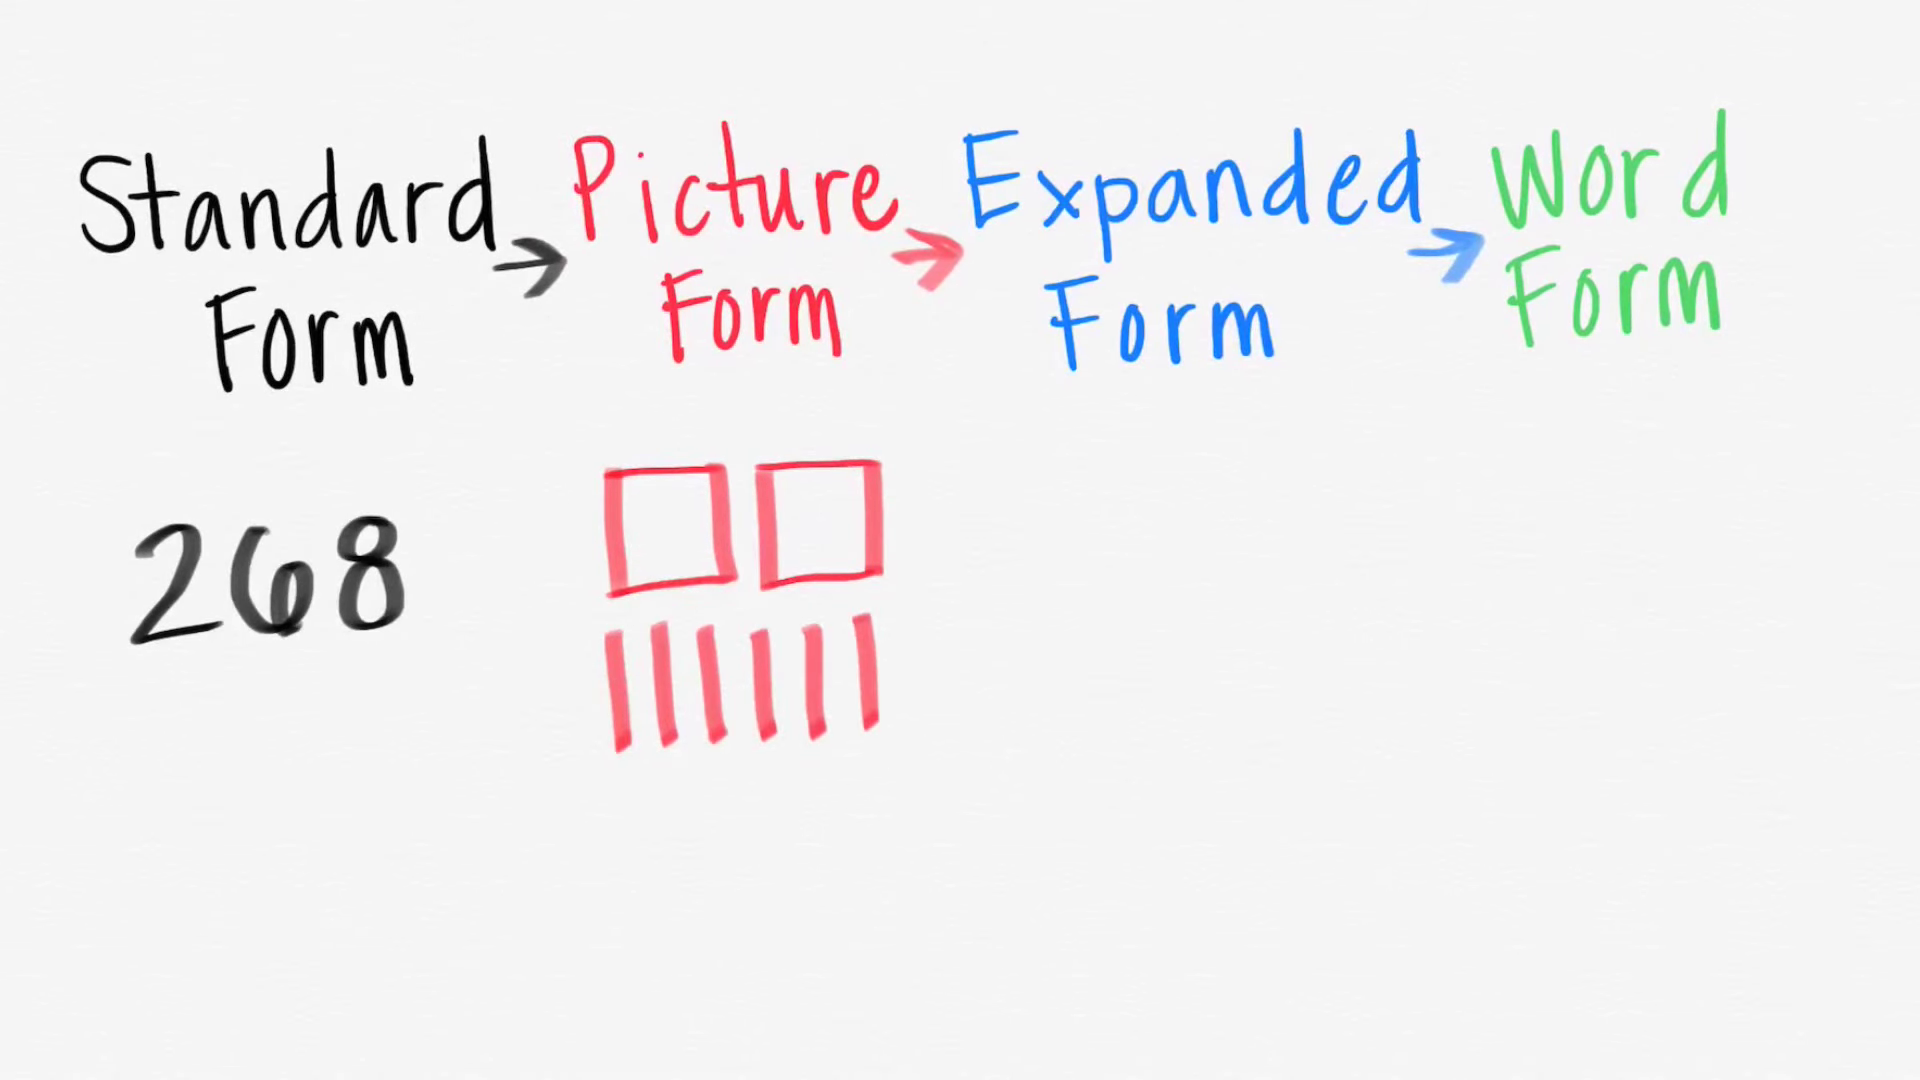 Standard Form
Picture Form
Expanded Form
Word Form
268